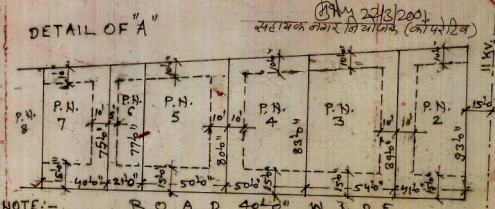 DETAIL OF "A"
22/3/2001
सहायक नगर नियोजक (कोपरेटिव)
11 KV.
10'0" 10'0" 10'0" 10'0"
P.N. 8
P.N. 7
P.N. 6
P.N. 5
P.N. 4
P.N. 3
P.N. 2
15'0"
10' 10'
75'0" 77'0" 80'0" 83'0" 89'0" 93'0"
15'0" 15'0" 15'0" 15'0" 15'0"
40'0" 21'0" 50'0" 50'0" 54'0" 41'0"
NOTE:- ROAD 40'0" WIDE